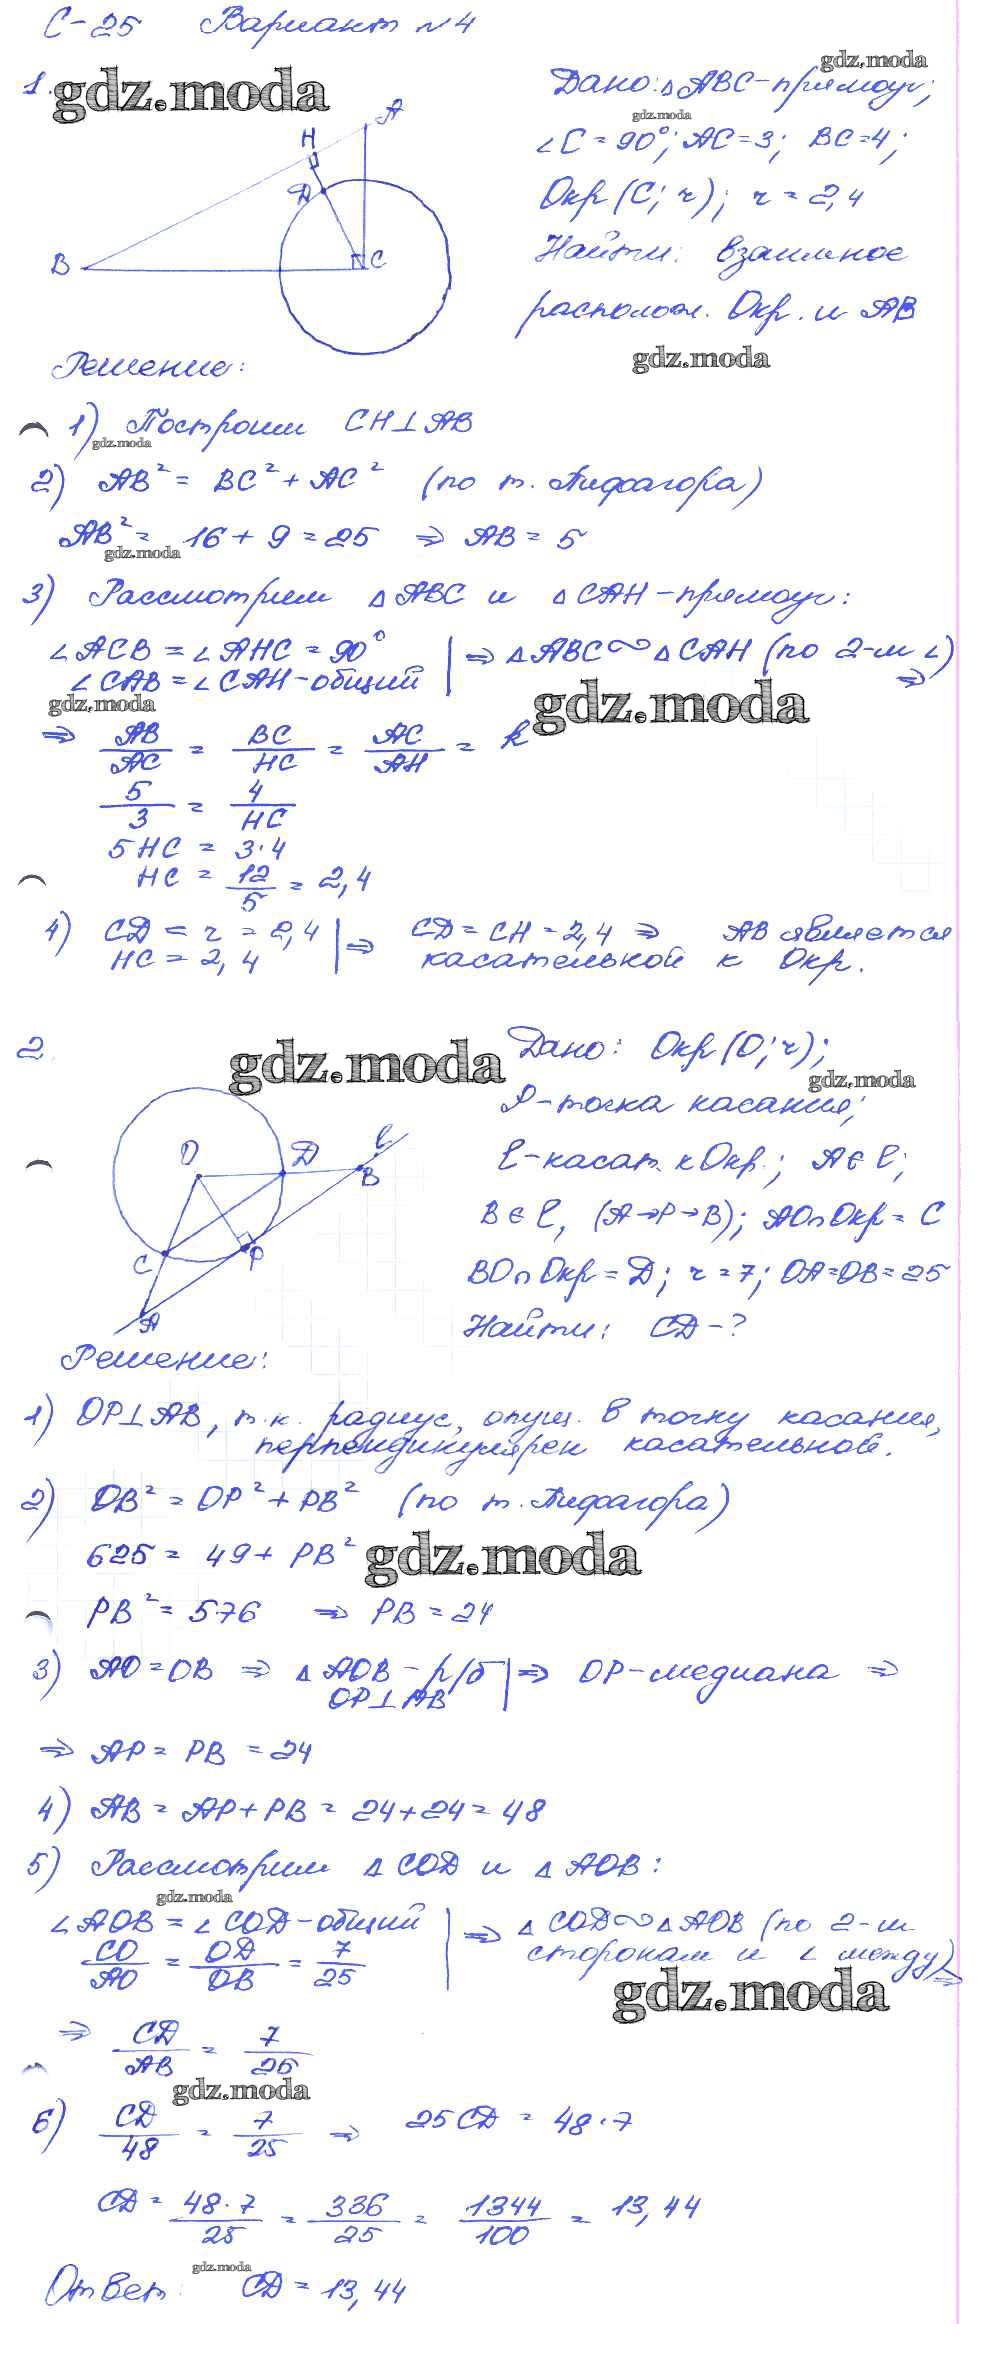 С-25 Вариант №4
1. gdz.moda
gdz.moda
Дано: △ABC-прямоуг;
gdz.moda
∠C = 90°; AC=3; BC=4;
Окр (C; r); r = 2,4
Найти: взаимное
располож. Окр. и AB
gdz.moda
A
H
D
B
C
Решение:
1) Построим CH⊥AB
gdz.moda
2) AB² = BC² + AC² (по т. Пифагора)
AB² = 16 + 9 = 25 ⇒ AB = 5
gdz.moda
3) Рассмотрим △ABC и △CAH-прямоуг:
∠ACB = ∠AHC = 90° | ⇒ △ABC ∾ △CAH (по 2-м ∠)
∠CAB = ∠CAH-общий | ⇒
gdz.moda
gdz.moda
⇒ AB/AC = BC/HC = AC/AH = k
5/3 = 4/HC
5HC = 3·4
HC = 12/5 = 2,4
4) CD = r = 2,4 | ⇒ CD = CH = 2,4 ⇒ AB является
HC = 2,4 | касательной к Окр.
2. gdz.moda
Дано: Окр (O; r);
gdz.moda
P-точка касания;
l-касат. к Окр.; A∈l;
B∈l, (A→P→B); AO∩Окр = C
BO∩Окр = D; r = 7; OA=OB=25
Найти: CD-?
O
D
l
B
C
P
A
Решение:
1) OP⊥AB, т.к. радиус, опущ. в точку касания,
перпендикулярен касательной.
2) OB² = OP² + PB² (по т. Пифагора)
625 = 49 + PB²
gdz.moda
PB² = 576 ⇒ PB = 24
3) AO = OB ⇒ △AOB - р/б | ⇒ OP-медиана ⇒
OP⊥AB |
⇒ AP = PB = 24
4) AB = AP + PB = 24 + 24 = 48
5) Рассмотрим △COD и △AOB:
gdz.moda
∠AOB = ∠COD-общий | ⇒ △COD ∾ △AOB (по 2-м
CO/AO = OD/OB = 7/25 | сторонам и ∠ между) ⇒
gdz.moda
⇒ CD/AB = 7/25
gdz.moda
6) CD/48 = 7/25 ⇒ 25CD = 48·7
CD = 48·7/25 = 336/25 = 1344/100 = 13,44
gdz.moda
Ответ: CD = 13,44